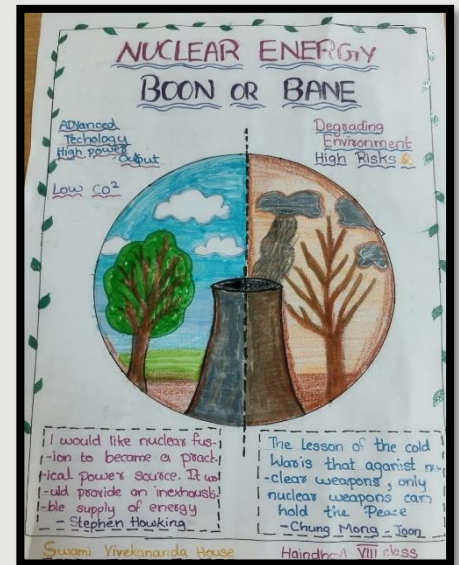 NUCLEAR ENERGY
BOON OR BANE
ADvanced
Techology
High power
Output
Low CO²
Degrading
Environment
High Risks
I would like nuclear fus-
-ion to became a pract-
-ical power source. It wo
-uld provide an inexhausti
-ble supply of energy
- Stephen Howking
The lesson of the cold
War is that against nu-
-clear weapons, only
nuclear weapons can
hold the Peace
- Chung Mong - Joon
Swami Vivekananda House
VIII class